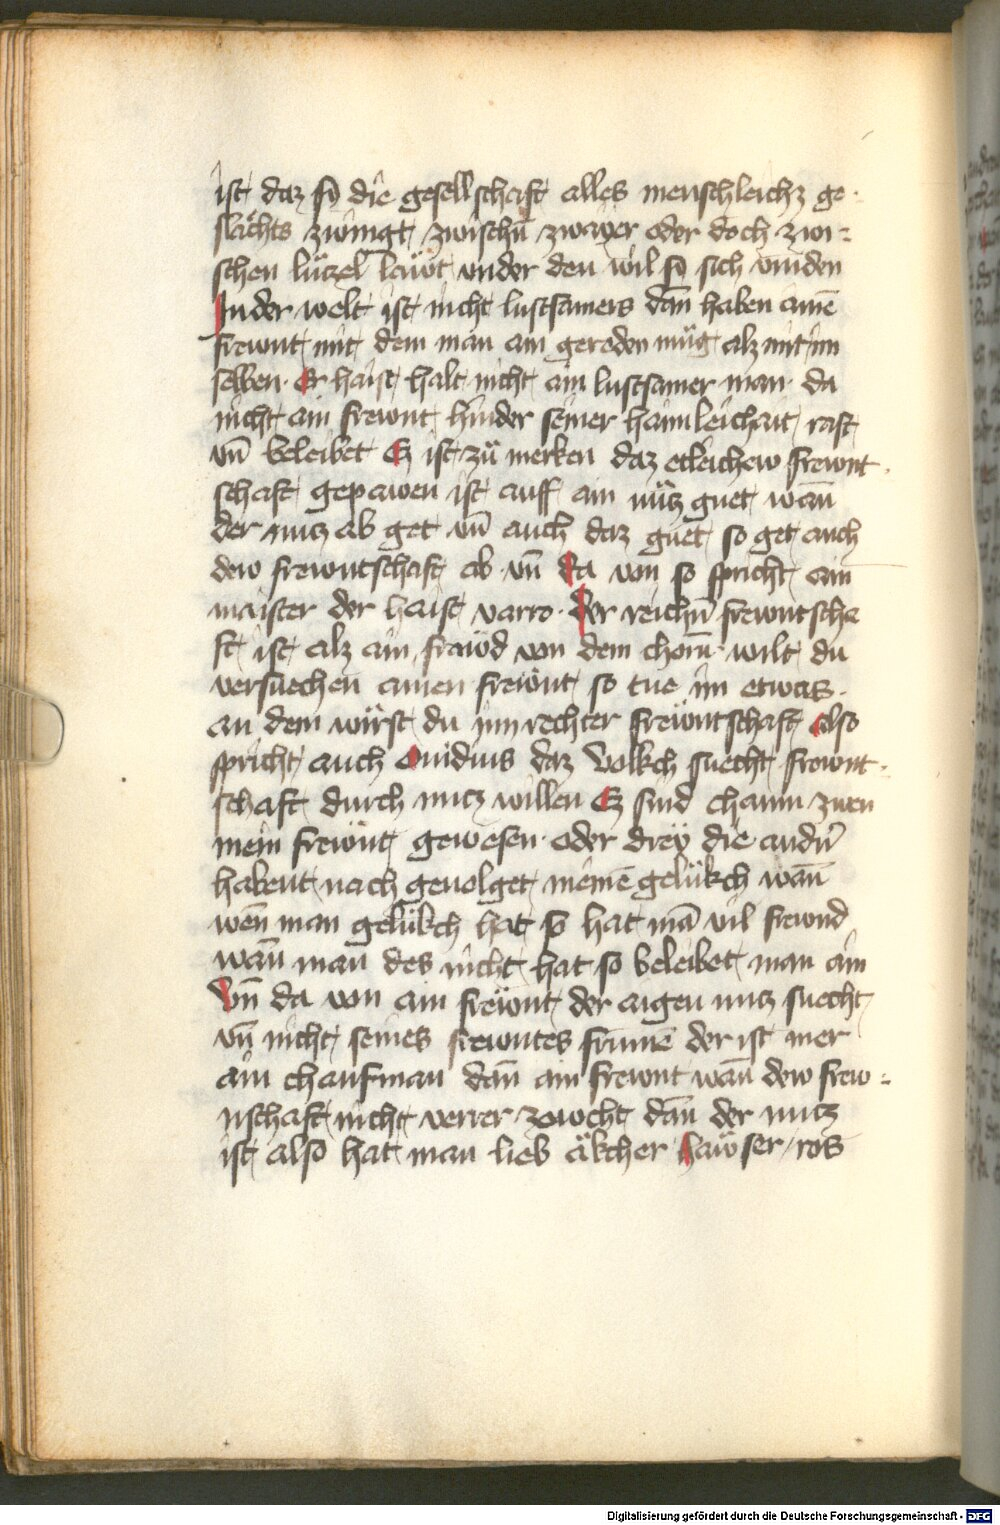 ist daz sy die gesellschaft alles menschleichz ge-
slächts zwingt zwischn̄ zwayer oder doch zwi=
schen lützel läwt under den wil sy sich vinden
In der welt ist nicht lustsamers dan̄ haben ainē
frewnt mit dem man am gereden müg alz mit im
selben. Er haist halt nicht ain lustsamer man da
nicht ain frewnt hinder seiner haimleichait rast
vn̄ beleibet Ez ist zü merken daz etleichew frewnt-
schaft gepawen ist auff ain nütz guet wan̄
der nutz ab get vn̄ auch daz guet so get auch
dew frewntschaft ab. vn̄ da von so spricht ain
maister der haist varro. Der reichn̄ frewntscha
ft ist alz ain fräwd von dem chorn̄ wilt du
versuechen ainen frewnt so tue im etwas.
an dem würst du inn rechter frewntschaft also
spricht auch Ouidius daz volkch suecht frewnt-
schaft durch nutz willen Ez sind chaum zwen
mein frewnt gewesen. oder dreÿ die andn̄
habent nach geuolget meinē gelükch wan̄
wen̄ man gelükch hat so hat mā vil frewnd
wan̄ man des nicht hat so beleibet man ain
Vn̄ da von ain frewnt der aigen nutz suecht
vn̄ nicht seines frewntes frumē der ist mer
ain chaufman dan̄ ain frewnt wan̄ dew frew=
nschaft nicht verrer zewcht dan̄ der nutz
ist also hat man lieb äkcher häwser ros
Digitalisierung gefördert durch die Deutsche Forschungsgemeinschaft - DFG